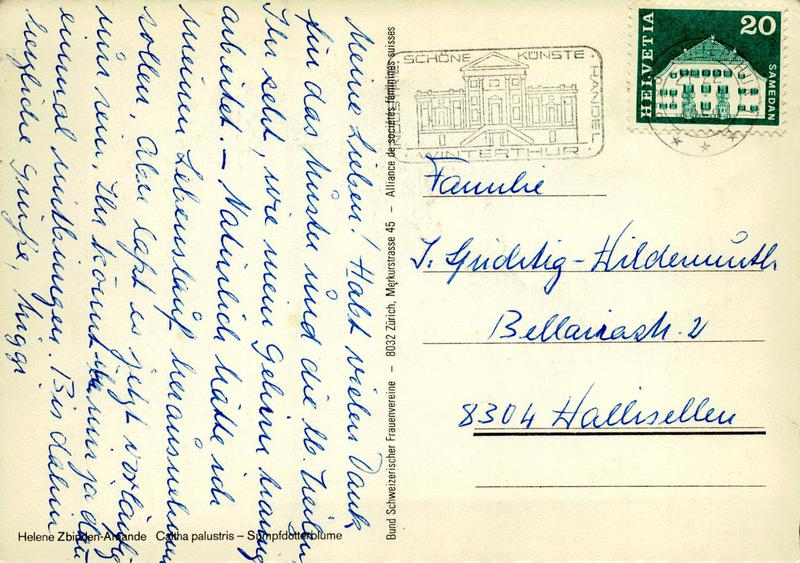 Meine Lieben! Habt vielen Dank
für das Muster und die lb. Zeilen.
Ihr seht, wie mein Gehirn mangelhaft
arbeitet. – Natürlich hätte ich
meinen Lebenslauf herausnehmen
sollen. Aber lasst es jetzt vorläufig
nur sein, Ihr könnt ihn mir ja dann
einmal mitbringen. Bis dahin
herzliche Grüsse,
Helene Zbinden-Amande Caltha palustris – Sumpfdotterblume
Bund Schweizerischer Frauenvereine – 8032 Zürich, Merkurstrasse 45 – Alliance de sociétés féminines suisses
SCHÖNE KÜNSTE · HANDEL
INDUSTRIE
WINTERTHUR
HELVETIA
20
SAMEDAN
Familie
J. Spichtig-Hildermuth
Bellariastr. 2
8304 Wallisellen